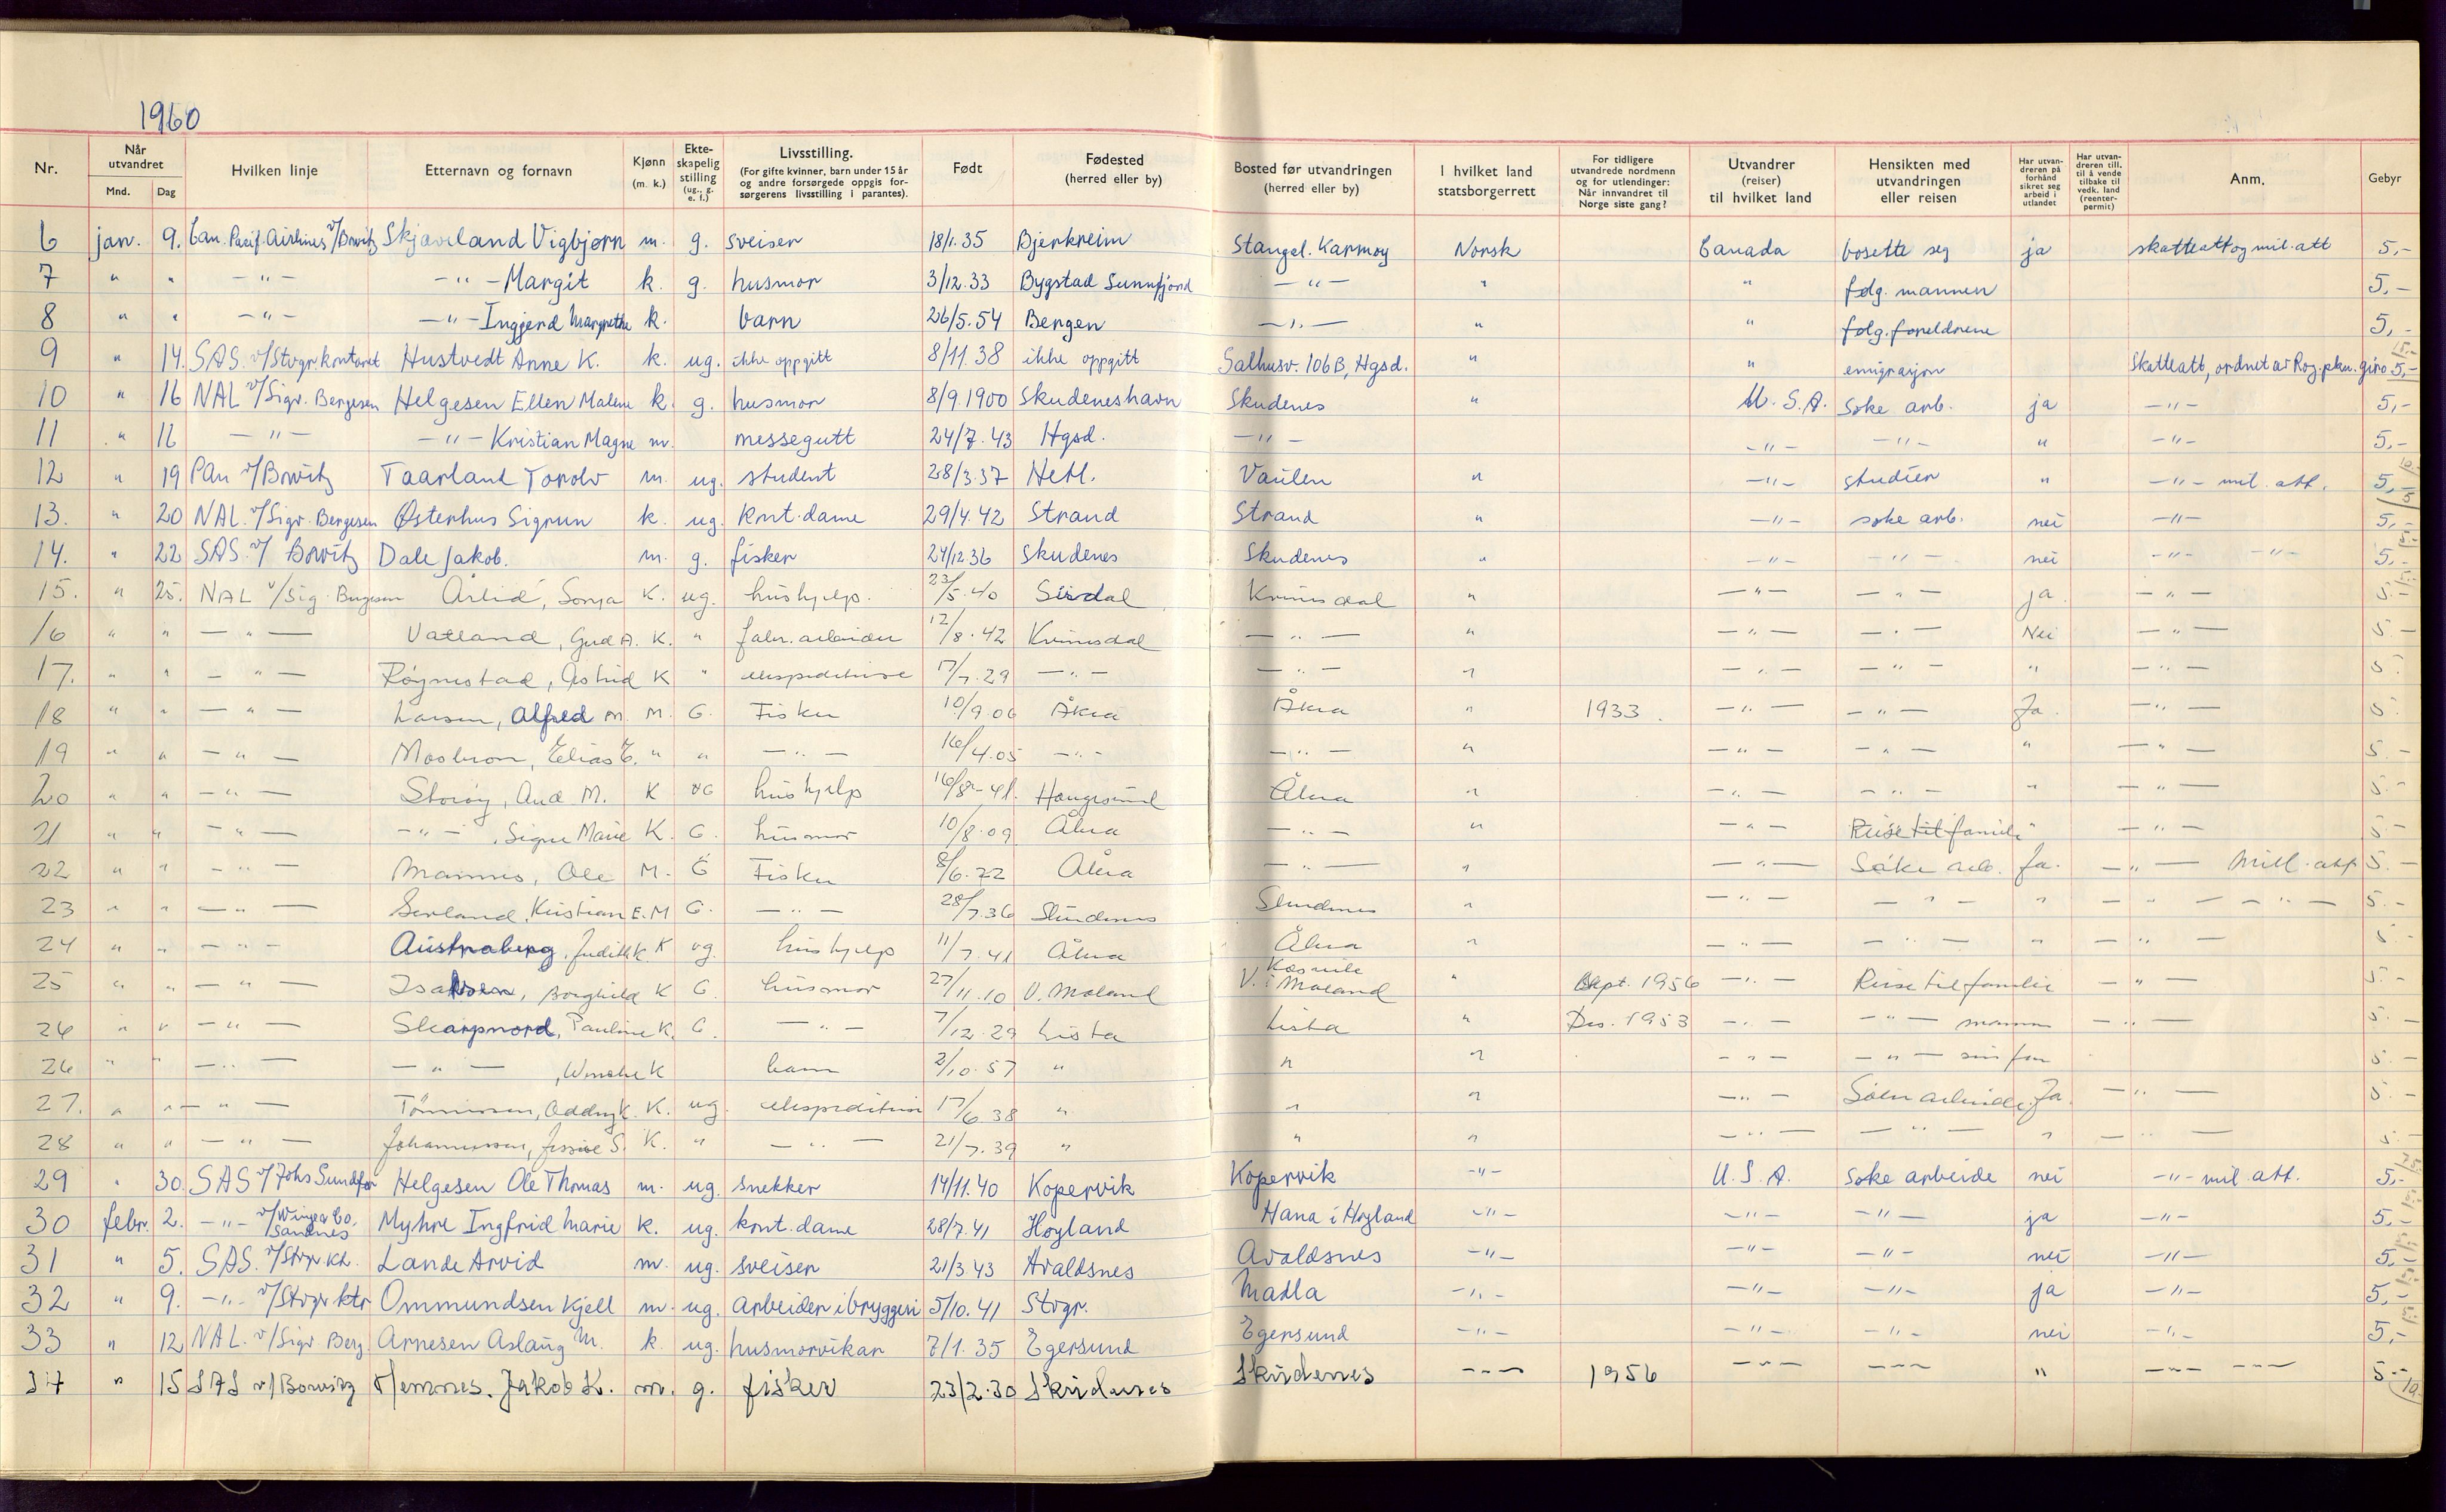 1960
Nr. Når utvandret Mnd. Dag Hvilken linje Etternavn og fornavn Kjønn (m. k.) Ekte-skapelig stilling (ug., g. e. f.) Livsstilling. (For gifte kvinner, barn under 15 år og andre forsørgede oppgis for-sørgerens livsstilling i parantes). Født Fødested (herred eller by) Bosted før utvandringen (herred eller by) I hvilket land statsborgerrett For tidligere utvandrede nordmenn og for utlendinger: Når innvandret til Norge siste gang? Utvandrer (reiser) til hvilket land Hensikten med utvandringen eller reisen Har utvan-dreren på forhånd sikret seg arbeid i utlandet Har utvan-dreren till. til å vende tilbake til vedk. land (reenter-permit) Anm. Gebyr
6 jan. 9. Can. Pacif. Airlines v/Bowitz Skjæveland Vigbjørn m. g. sveiser 18/1.35 Bjerkreim Stangel. Karmøy Norsk Canada bosette seg ja skatteatt og mil. att 5,-
7 " " -"- -"- Margit k. g. husmor 3/12.33 Bygstad Sunnfjord -"- " " følg. mannen 5,-
8 " " -"- -"- Ingjerd Margrethe k. barn 26/5.54 Bergen -"- " " følg. foreldrene 5,-
9 " 14. SAS v/Stvgr. kontoret Hustvedt Anne K. k. ug. ikke oppgitt 8/11.38 ikke oppgitt Salhusv. 106B, Hgsd. " " emigrasjon Skatteatt, ordnet av Rog. plan. giro 5,-
10 " 16 NAL v/Sigv. Bergesen Helgesen Ellen Malene k. g. husmor 8/9.1900 Skudeneshavn Skudenes " U.S.A. søke arb. ja -"- 5,-
11 " 16 -"- -"- Kristian Magne m. messegutt 24/7.43 Hgsd. -"- -"- -"- " -"- 5,-
12 " 19 PAn v/Bowitz Taarland Torolv m. ug. student 28/3.37 Hetl. Vaulen " -"- studier " -"- mil. att. 5,-
13. " 20 NAL. v/Sigv. Bergesen Østerhus Sigrun k. ug. kont.dame 29/4.42 Strand Strand " -"- søke arb. nei -"- 5,-
14. " 22 SAS. v/ Bowitz Dale Jakob. m. g. fisker 24/12.36 Skudenes Skudenes " -"- -"- nei -"- -"- 5,-
15. " 25. NAL v/Sig. Bergesen Årlid, Sonja K. ug. hushjelp. 23/5.40 Sirdal Kvinesdal " -"- -"- ja -"- 5.-
16 " " -"- Vatland, Gud A. K. " fabr. arbeider 12/8.42 Kvinesdal -"- " -"- -"- Nei -"- 5.-
17. " " -"- Røynestad, Astrid K " ekspeditrise 17/7.29 -"- -"- " -"- -"- " -"- 5.-
18 " " -"- Larsen, Alfred M. M. G. Fisker 10/9.06 Åkra Åkra " 1933. -"- -"- Ja. -"- 5.
19 " " -"- Mosbron, Elias E. " " -"- 16/4.05 -"- -"- " -"- -"- " -"- 5.-
20 " " -"- Storøy, Aud M. K UG hushjelp 16/8-41. Haugesund Åkra " -"- -"- " -"- 5.-
21 " " -"- -"-, Signe Marie K. G. husmor 10/8.09 Åkra -"- " -"- Reise til familie " -"- 5.-
22 " " -"- Mannes, Ole M. G Fisker 8/6.22 Åkra -"- " -"- Søke arb. Ja. -"- Mill. att 5.-
23 " " -"- Kristian E. M G. -"- 28/7.36 Skudenes Skudenes " -"- -"- " -"- -"- 5.-
24 " " -"- Austraberg, Judith K. K ug. hushjelp 11/7.41 Åkra Åkra " -"- -"- " -"- 5.-
25 " " -"- Isaksen, Borghild K G. husmor 27/11.10 V. Moland V. i Moland " Sept. 1956 -"- Reise til familie -"- 5.-
26 " " -"- Skarpnord, Pauline K. G. -"- 7/12.29 Lista Lista " Des. 1953 -"- -"- mannen -"- 5.-
26 " " -"- -"-, Wenche K barn 2/10.57 " " " -"- -"- sin far 5.-
27. " " -"- Tønnessen, Oddny K. K. ug. ekspeditrise 17/6.38 " " " -"- Søker arbeide Ja. -"- 5.-
28 " " -"- Johannessen, Jessie S. K. " -"- 21/7.39 " " " -"- -"- " -"- 5.-
29 " 30. SAS v/Johs Sundfør Helgesen Ole Thomas m. ug. snekker 14/11.40 Kopervik Kopervik -"- U.S.A. søke arbeide nei -"- mil. att. 5,-
30 febr. 2. -"- v/Winge & Co. Sandnes Myhre Ingfrid Marie k. ug. kont.dame 28/7.41 Høyland Hana i Høyland -"- -"- -"- ja -"- 5,-
31 " 5. SAS. v/Stvgr kt. Lande Arvid m. ug. sveiser 21/3.43 Avaldsnes Avaldsnes -"- -"- -"- nei -"- 5,-
32 " 9. -"- v/Stvgr ktr Ommundsen Kjell m. ug. arbeider i bryggeri 5/10.41 Stvgr. Madla -"- -"- -"- ja -"- 5,-
33 " 12 NAL. v/Sigv. Berg. Arnesen Aslaug M. k. ug. husmorvikar 7/1.35 Egersund Egersund -"- -"- -"- nei -"- 5,-
34 " 15 SAS v/Bowitz Hemnes. Jakob K. m. g. fisker 23/2.30 Skudenes Skudenes -"- 1956 -"- -"- " -"- -"- 5.-